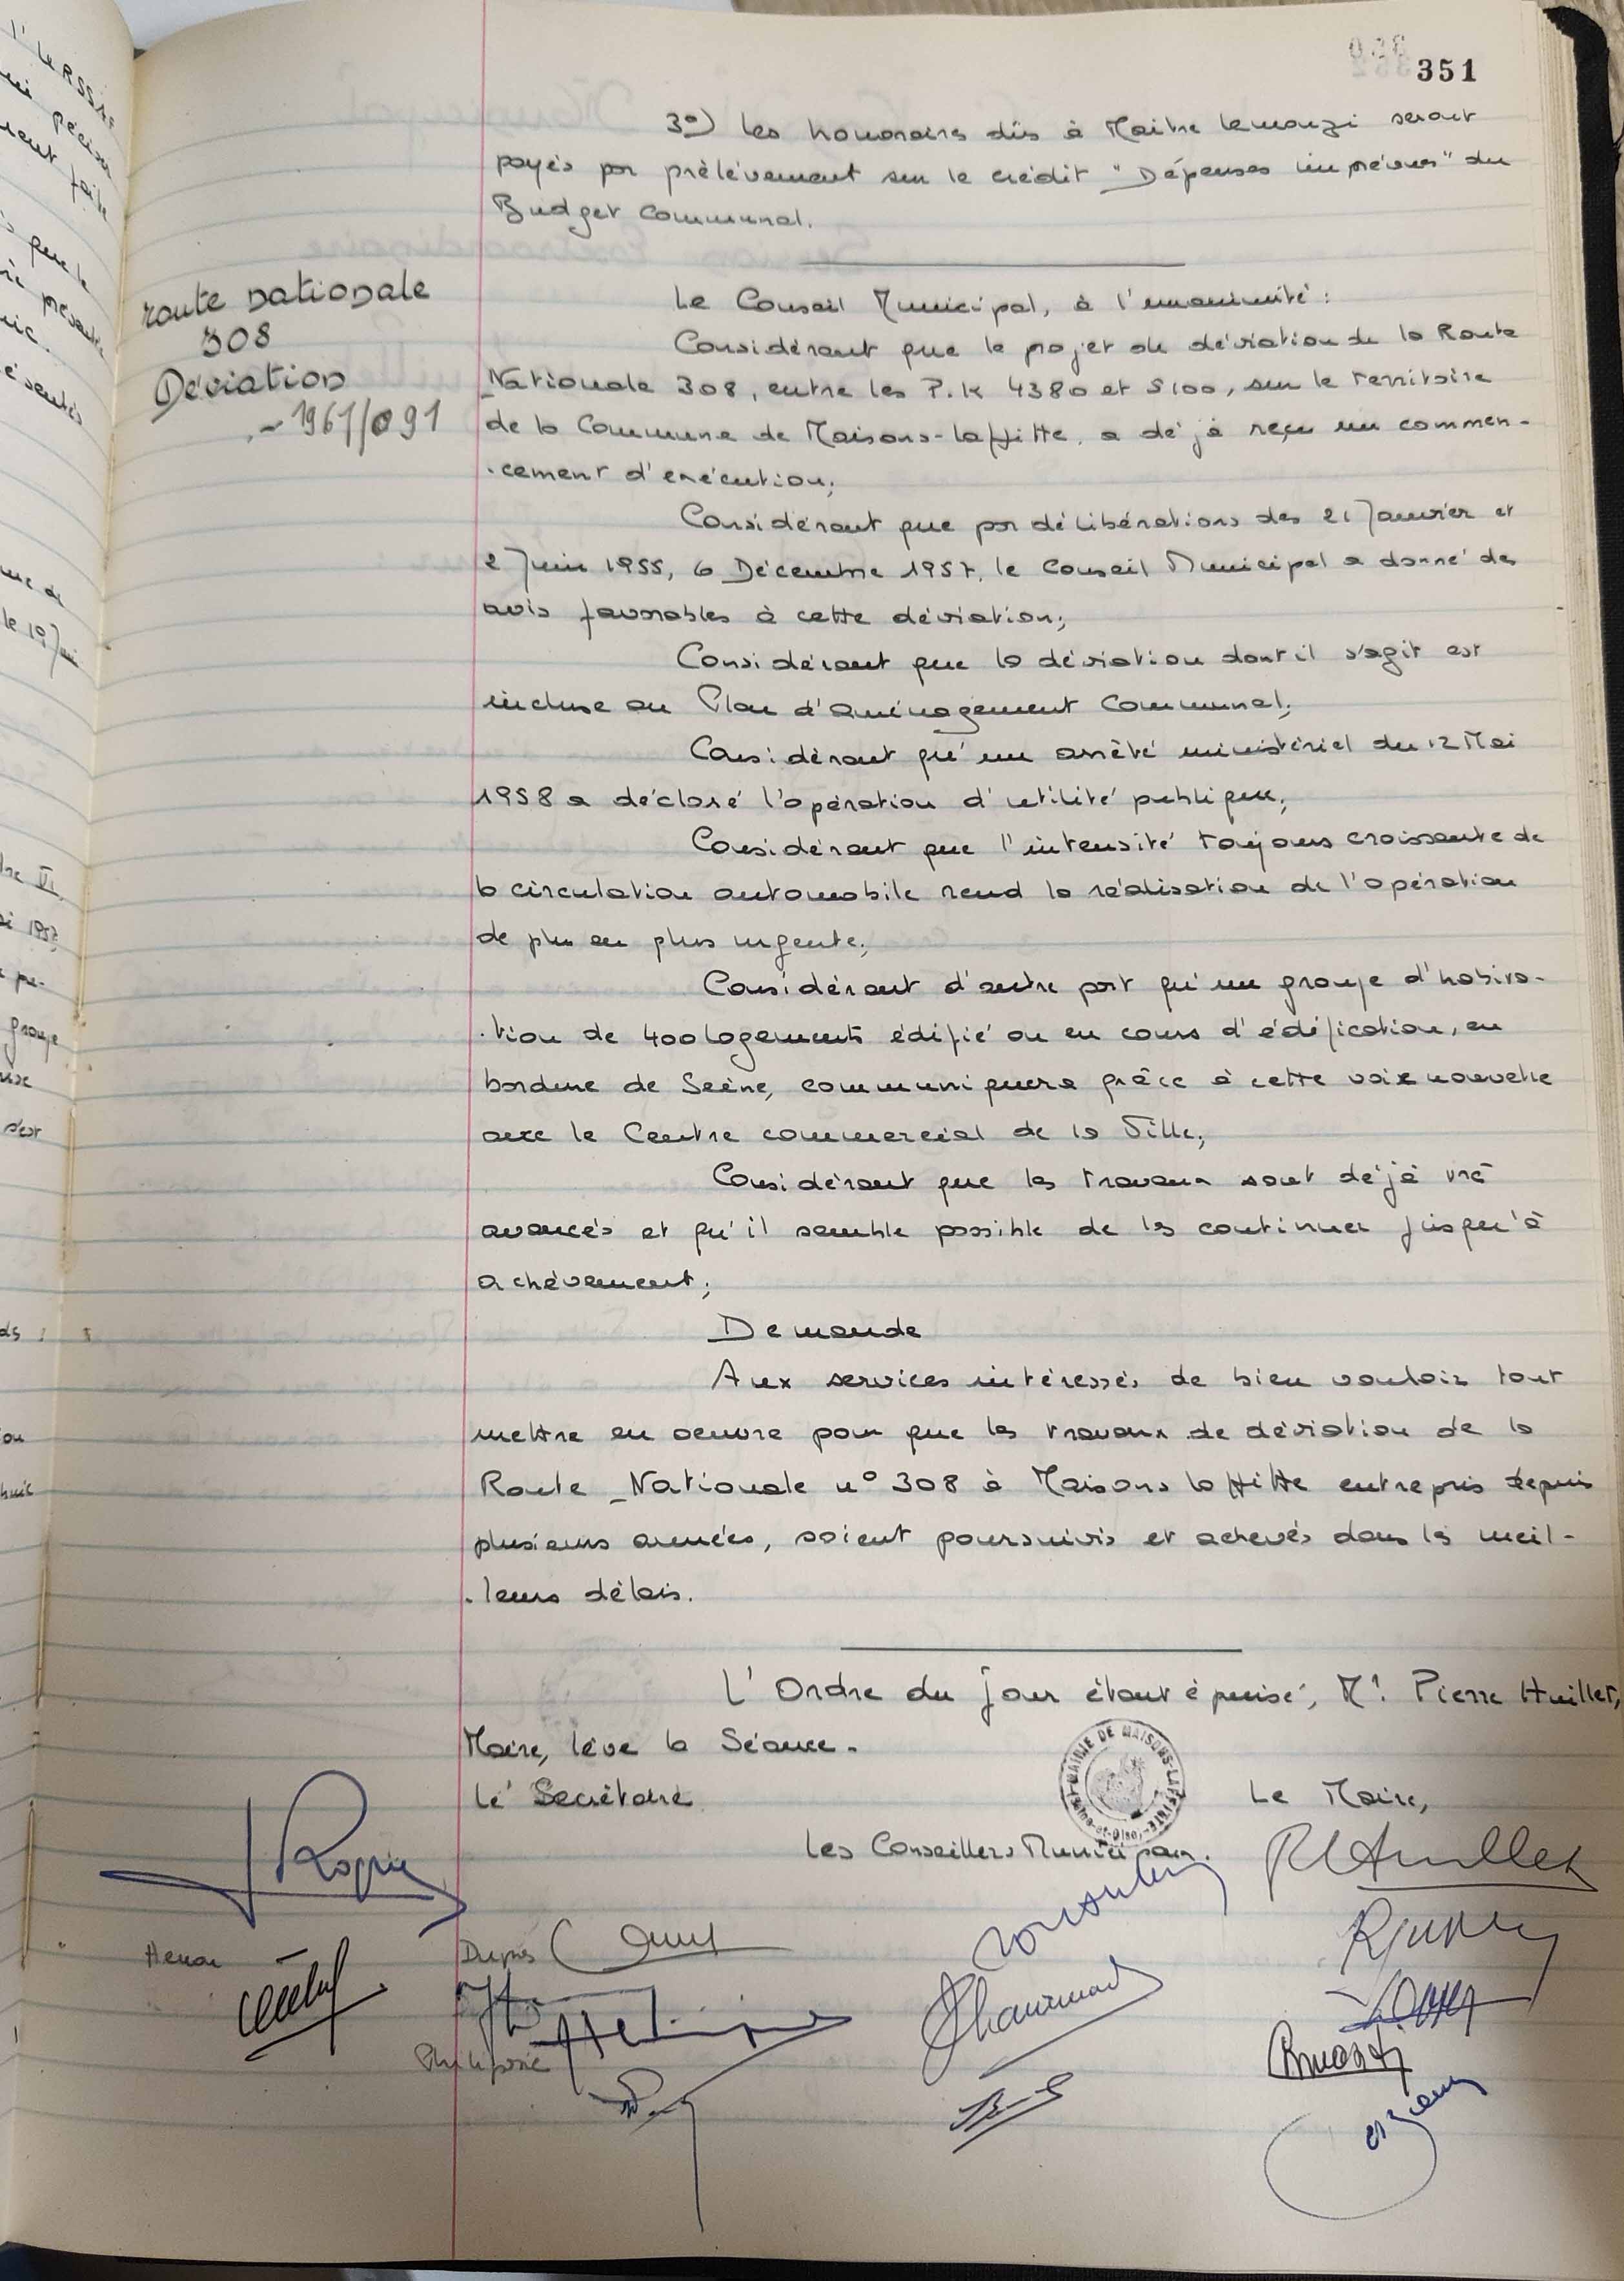 351
3°) les honoraires dûs à Maître Lemonzi seront
payés par prélèvement sur le crédit "Dépenses imprévues" du
Budget Communal.
route nationale
308
Déviation
1961/091
Le Conseil Municipal, à l'unanimité :
Considérant que le projet de déviation de la Route
Nationale 308, entre les P.K 4380 et 5100, sur le territoire
de la Commune de Maisons-Laffitte, a déjà reçu un commen-
-cement d'exécution;
Considérant que par délibérations des 21 Janvier et
2 Juin 1955, 6 Décembre 1957, le Conseil Municipal a donné des
avis favorables à cette déviation;
Considérant que la déviation dont il s'agit est
incluse au Plan d'aménagement Communal;
Considérant qu'un arrêté ministériel du 12 Mai
1958 a déclaré l'opération d'utilité publique;
Considérant que l'intensité toujours croissante de
la circulation automobile rend la réalisation de l'opération
de plus en plus urgente;
Considérant d'autre part qu'un groupe d'habita-
-tion de 400 logements édifié ou en cours d'édification, en
bordure de Seine, communiquera grâce à cette voie nouvelle
avec le Centre commercial de la Ville;
Considérant que les travaux sont déjà très
avancés et qu'il semble possible de les continuer jusqu'à
achèvement;
Demande
Aux services intéressés de bien vouloir tout
mettre en oeuvre pour que les travaux de déviation de la
Route Nationale n° 308 à Maisons Laffitte entrepris depuis
plusieurs années, soient poursuivis et achevés dans les meil-
-leurs délais.
L'Ordre du jour étant épuisé, Mr. Pierre Huillet,
Maire, lève la Séance.
Le Secrétaire
MAIRIE DE MAISONS-LAFFITTE
Le Maire,
Les Conseillers Municipaux.
Dupuis